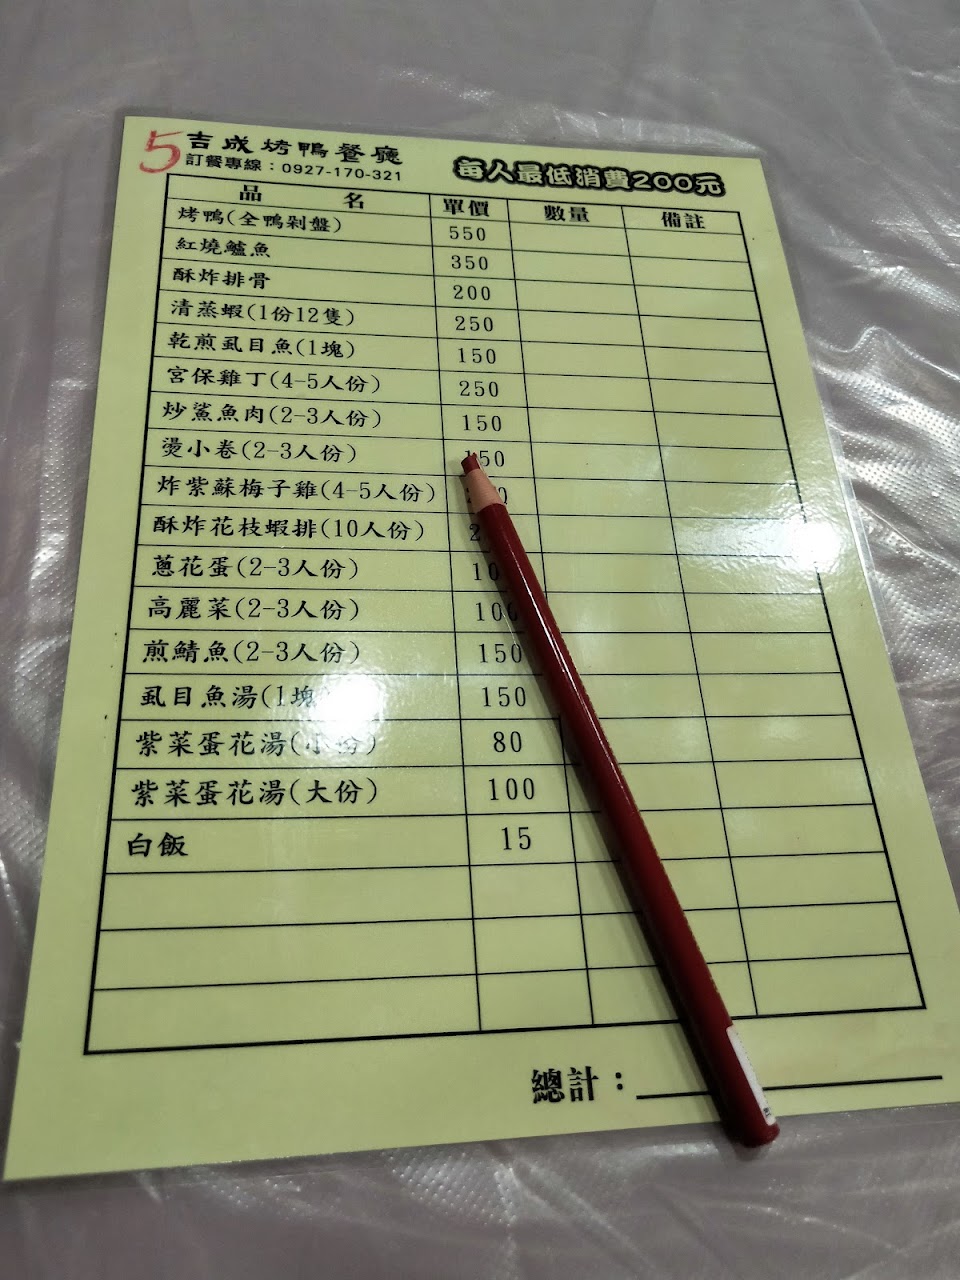 5
吉成烤鴨餐廳
訂餐專線：0927-170-321
每人最低消費200元
品名 單價 數量 備註
烤鴨(全鴨剁盤) 550
紅燒鱸魚 350
酥炸排骨 200
清蒸蝦(1份12隻) 250
乾煎虱目魚(1塊) 150
宮保雞丁(4-5人份) 250
炒鯊魚肉(2-3人份) 150
燙小卷(2-3人份) 150
炸紫蘇梅子雞(4-5人份)
酥炸花枝蝦排(10人份)
蔥花蛋(2-3人份)
高麗菜(2-3人份) 100
煎鯖魚(2-3人份) 150
虱目魚湯(1塊) 150
紫菜蛋花湯(小份) 80
紫菜蛋花湯(大份) 100
白飯 15
總計：